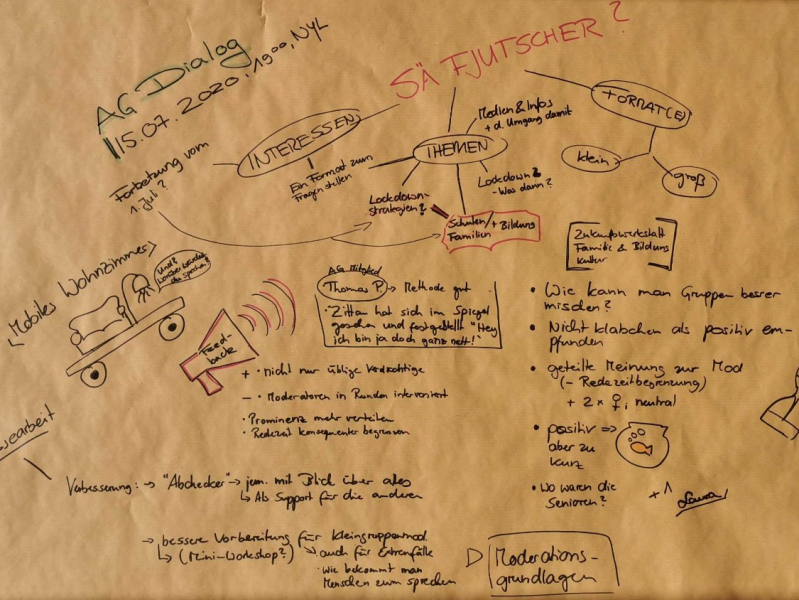 AG Dialog
15.07.2020, 19⁰⁰, NYL
SÄ FJUTSCHER?
INTERESSEN
Ein Format zum
Fragen stellen
THEMEN
Medien & Infos
+ d. Umgang damit
Lockdown
- Was dann?
Lockdown-
strategien?
Schulen/+ Bildung
Familien
FORMAT(E)
klein
groß
vom
1. Juli?
Zukunftswerkstatt
Familie & Bildungs
kultur
Mobiles Wohnzimmer
Feed-
back
AG Mitglied
Thomas P. → Methode gut
· Zittau hat sich im Spiegel
gesehen und festgestellt "Hey
ich bin ja doch ganz nett!"
+ · nicht nur übliche Verdächtige
- · Moderatoren in Runden interveniert
· Prominenz mehr verteilen
· Redezeit konsequenter begrenzen
• Wie kann man Gruppen besser
mischen?
• Nicht klatschen als positiv em-
pfunden
• geteilte Meinung zur Mod
(- Redezeitbegrenzung)
+ 2 x ♀, neutral
• positiv =>
aber zu
kurz
• Wo waren die
Senioren?
+ 1
Laura
Verbesserung: → "Abchecker" → jem. mit Blick über alles
↳ Als Support für die anderen
→ bessere Vorbereitung für Kleingruppenmod.
↳ (Mini-Workshop?) ↘ auch für Extremfälle
· Wie bekommt man
Menschen zum sprechen
▷ Moderations-
grundlagen